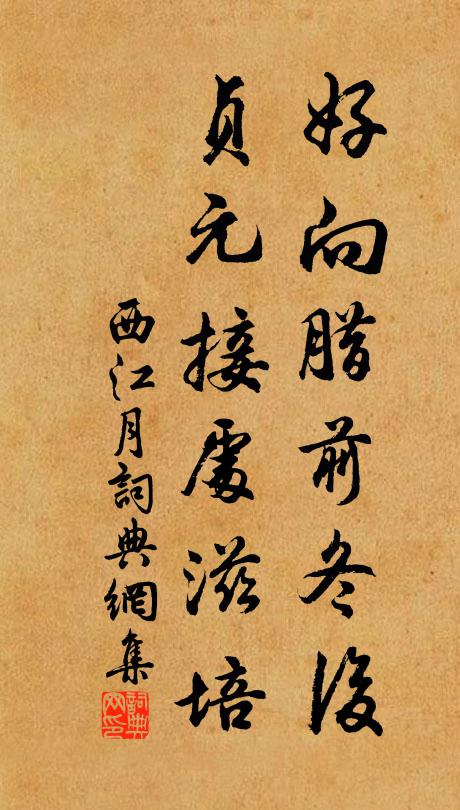 好向腊前冬後
貞元接處滋培
西江月詞典網集
詞典网印